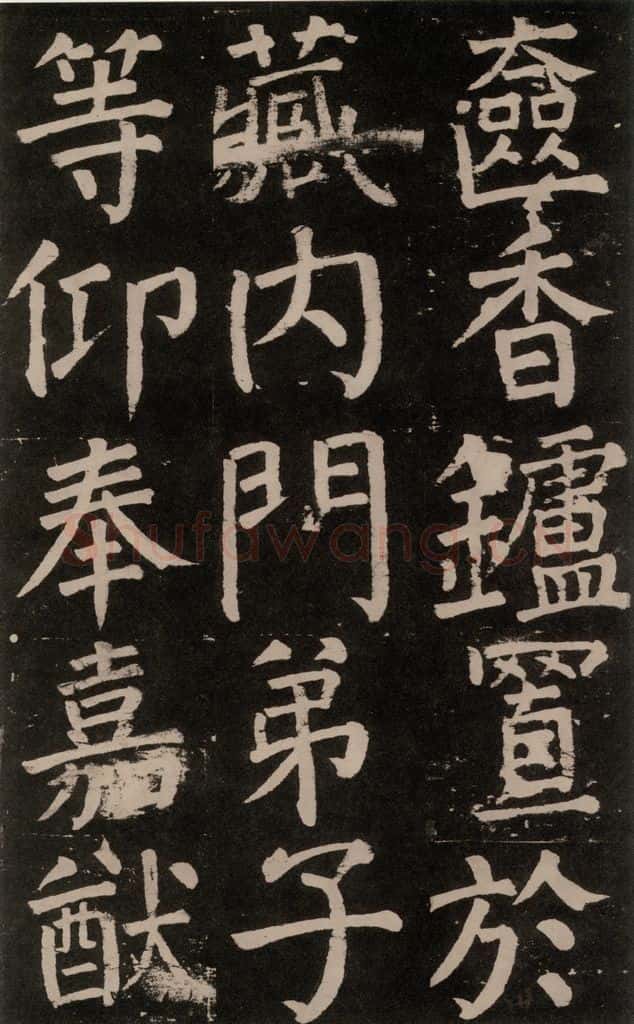 奩香鑪置於
藏内門弟子
等仰奉嘉猷
Shufawang.CN